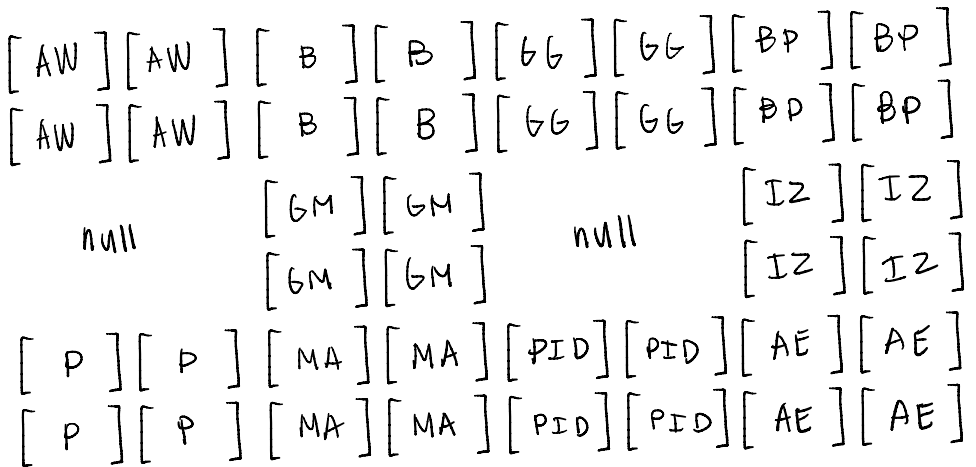 [AW] [AW] [B] [B] [GG] [GG] [BP] [BP]
[AW] [AW] [B] [B] [GG] [GG] [BP] [BP]
[GM] [GM] [IZ] [IZ]
null null
[GM] [GM] [IZ] [IZ]
[P] [P] [MA] [MA] [PID] [PID] [AE] [AE]
[P] [P] [MA] [MA] [PID] [PID] [AE] [AE]